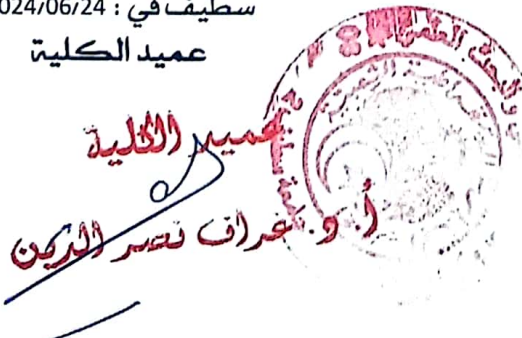 سطيف في : 024/06/24
عميد الكلية
عميد الكلية
أ. د. غراف نصر الدين